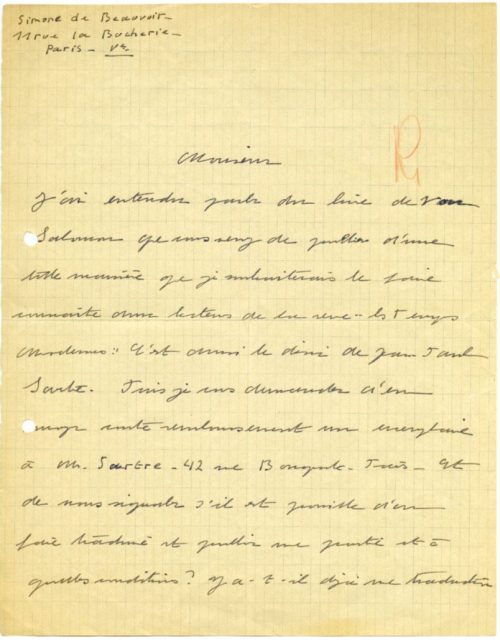 Simone de Beauvoir -
11 rue la Bucherie -
Paris - Ve.
Monsieur
J'ai entendu parler du livre de Von
Salomon que vous venez de publier d'une
telle manière que je souhaiterais le faire
connaître aux lecteurs de la revue "Les Temps
Modernes". C'est aussi le désir de Jean Paul
Sartre. Puis-je vous demander d'en
envoyer contre remboursement un exemplaire
à M. Sartre - 42 rue Bonaparte - Paris - Et
de nous signaler s'il est possible d'en
faire traduire et publier une partie et à
quelles conditions? Y a-t-il déjà une traduction